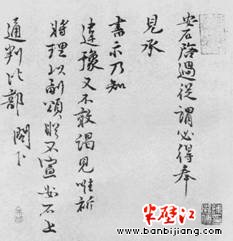 安石啓過從謂必得奉
見承
書示乃知
違豫又不敢謁見唯祈
將理以副頌眎不宣安石上
通判比部 閣下
半壁江
www.banbijiang.com